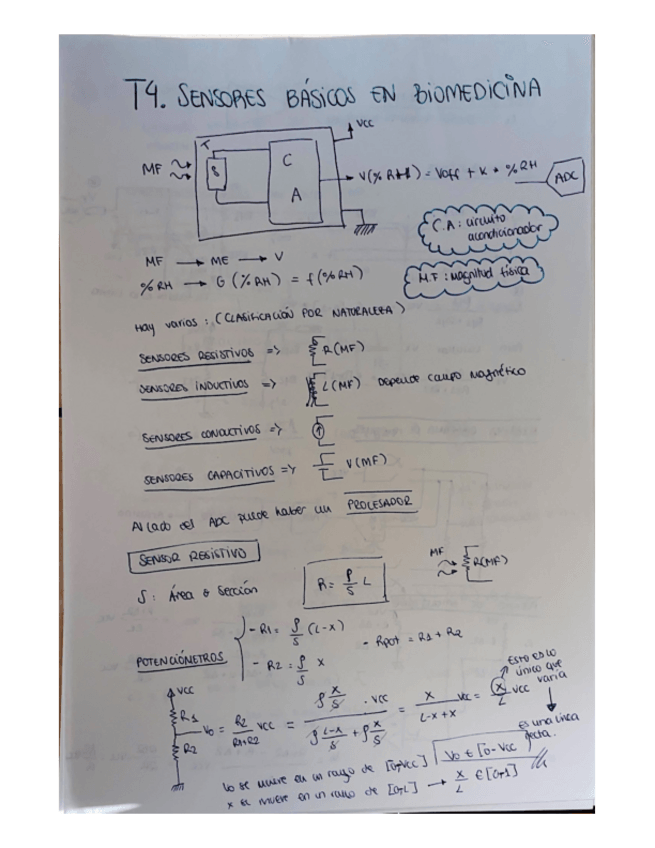 T4. SENSORES BÁSICOS EN BIOMEDICINA
VCC
MF
S
C
A
V(% RH) = Voff + K * % RH
ADC
C.A: circuito
acondicionador
M.F: Magnitud física
MF → ME → V
% RH → G (% RH) = f(% RH)
Hay varios: (CLASIFICACIÓN POR NATURALEZA)
SENSORES RESISTIVOS => R(MF)
SENSORES INDUCTIVOS => L(MF) Depende campo magnético
SENSORES CONDUCTIVOS =>
SENSORES CAPACITIVOS => V(MF)
Al lado del ADC puede haber un PROCESADOR
SENSOR RESISTIVO
MF
R(MF)
S: Área o Sección
R = ρ/S L
POTENCIÓMETROS
- R1 = ρ/S (L-x)
- R2 = ρ/S x
- Rpot = R1 + R2
Esto es lo
único que
varía
VCC
R1
R2
Vo = R2/(R1+R2) VCC = (ρ x/S · VCC)/(ρ (L-x)/S + ρ x/S) = x/(L-x+x) VCC = x/L VCC
es una línea
recta.
Vo se mueve en un rango de [0-VCC]
Vo ∈ [0-VCC]
x se mueve en un rango de [0-L] → x/L ∈ [0-1]